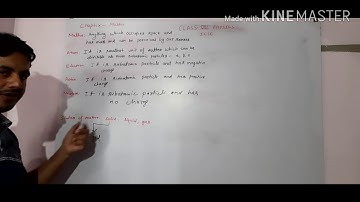 Made with
KINEMASTER
Chapter: Matter
CLASS VII
Matter: Anything which occupies space and
has mass and can be perceived by our senses
Atom: It is smallest unit of matter which can be
divided
Electron: It is subatomic particle and has negative
charge
It is subatomic particle and has positive
charge
It is subatomic particle and has
no charge
States of matter Solid liquid, gas